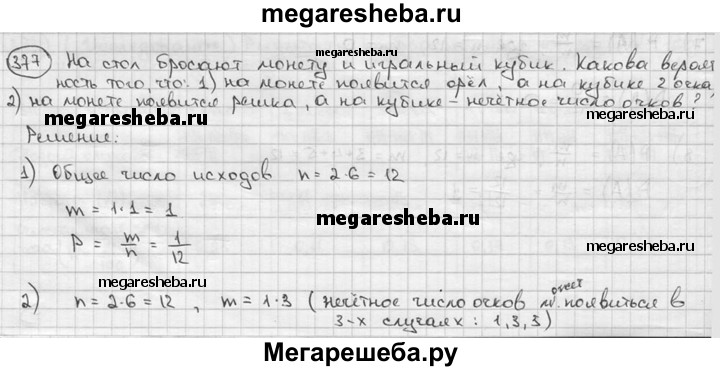 megaresheba.ru
377 На стол бросают монету и игральный кубик. Какова вероят
ность того, что: 1) на монете появится орёл, а на кубике 2 очка,
2) на монете появится решка, а на кубике – нечётное число очков?
megaresheba.ru megaresheba.ru
Решение:
1) Общее число исходов n = 2·6 = 12
m = 1·1 = 1
megaresheba.ru
P = m/n = 1/12
megaresheba.ru megaresheba.ru
2) n = 2·6 = 12, m = 1·3 (нечётное число очков может появиться в
3-х случаях: 1,3,3)
Мегарешеба.ру